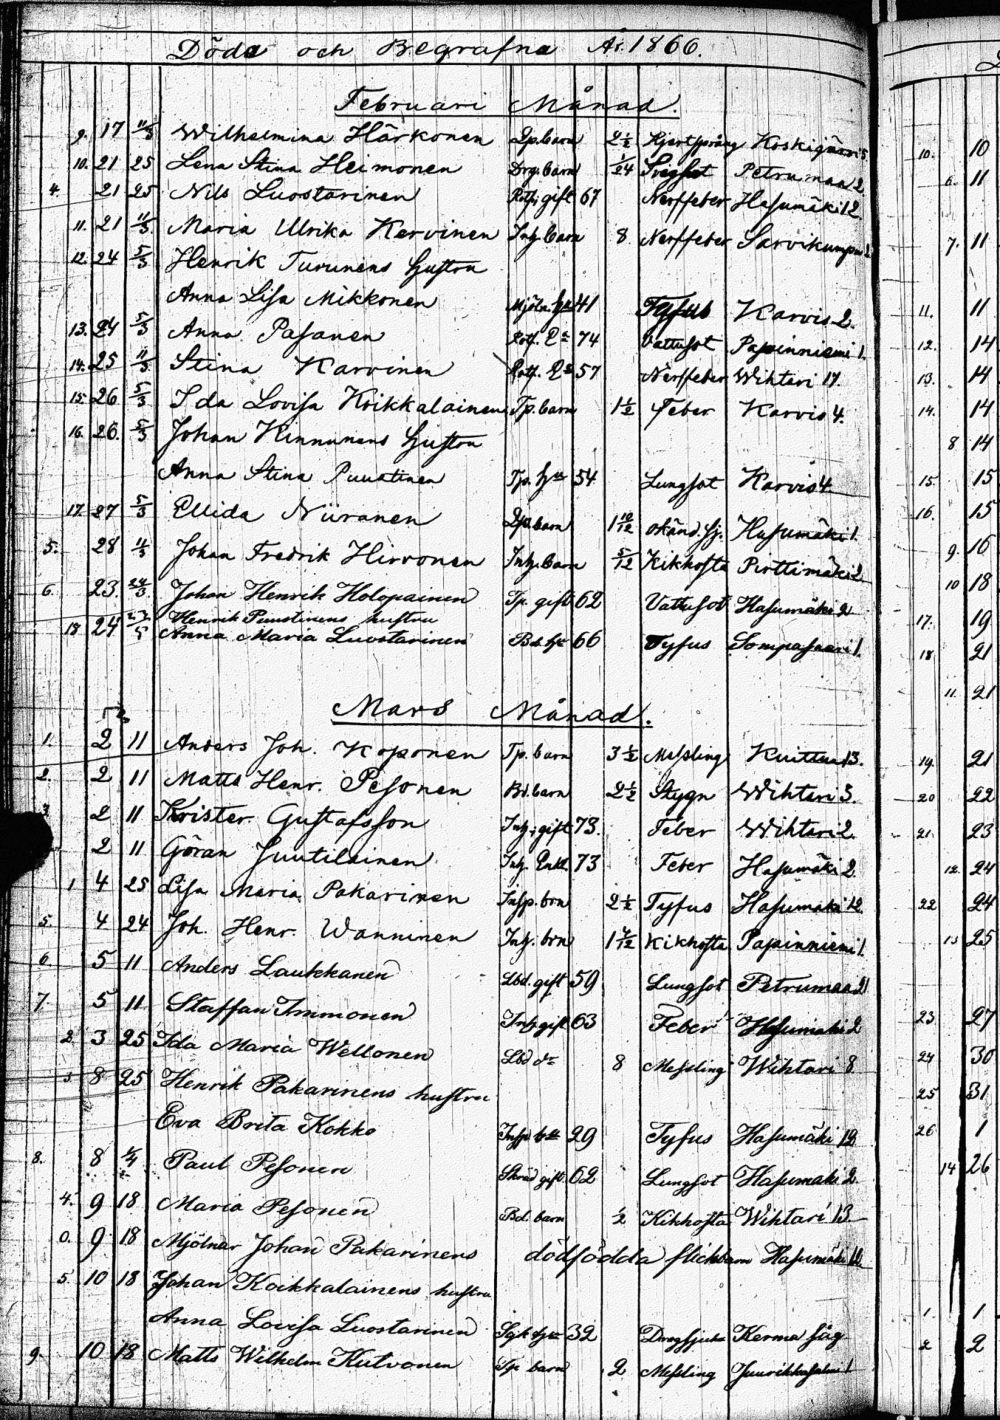 Döda och Begrafne År 1866.
Februari Månad.
9. 17 11/3 Wilhelmina Härkonen barn 2 1/2 Hjertsprång
10. 21 25 Lena Stina Heimonen barn 1/24 Petrumaa 2
4. 21 25 Nils Luostarinen gift 67 Nerffeber Hasumäki 12
11. 21 11/3 Maria Ulrika Kervinen Inh. barn 8 Nerffeber
12. 24 5/3 Henrik Turunens hustru
Anna Lisa Mikkonen 41 Tyfus Karvis 2.
13. 24 5/3 Anna Pasanen 74 Vattusot Papinniemi 1.
14. 25 11/3 Stina Karvinen 57 Nerffeber Wihtari 17.
15. 26 5/3 Ida Lovisa Koikkalainen Tp. barn 1 1/2 Feber Karvis 4.
16. 26. 5/3 Johan Kinnunens hustru
Anna Stina Puustinen 54 Lungsot Karvis 4.
17. 27 5/3 Elida Niiranen barn 1 10/12 okänd sj. Hasumäki 1.
5. 28 11/3 Johan Fredrik Hirvonen Inh. barn 5/12 Kikhosta Pirttimäki 2
6. 23. Johan Henrik Holopainen Tp. gift 62 Vattusot Hasumäki 2
Henrik Puustinens hustru
18 24 Anna Maria Luostarinen 66 Tyfus Sompasaari 1.
Mars Månad.
1. 2 11 Anders Joh. Koponen Tp. barn 3 1/2 Messling Kuittua 13.
2. 2 11 Matts Henr. Pesonen Bd. barn 2 1/2 Stygn Wihtari 3.
3 2 11 Krister Gustafsson Inh. gift 73. Feber Wihtari 2.
2 11 Göran Juutilainen Inh. Enkl. 73 Feber Hasumäki 2.
1 4 25 Lisa Maria Pakarinen brn 2 1/2 Tyfus Hasumäki 12.
5. 4 24 Joh. Henr. Wanninen Inh. brn Kikhosta Papinniemi 1.
6 5 11 Anders Laukkanen Lbd. gift 59 Lungsot Petrumaa 21
7. 5 11 Staffan Immonen Inh gift 63 Feber Hasumäki 2
2. 3 25 Ida Maria Wellonen Lbd 8 Messling Wihtari 8
3. 8 25 Henrik Pakarinens hustru
Eva Brita Kokko 29 Tyfus Hasumäki 12
8. 8 Paul Pesonen gift. 62 Lungsot Hasumäki 2.
4. 9 18 Maria Pesonen Bd. barn 1/2 Kikhosta Wihtari 13
0. 9 18 Mjölnar Johan Pakarinens dödfödda flickbarn Hasumäki 12
5. 10 18 Johan Koikkalainens hustru
Anna Lovisa Luostarinen 32 Kerma såg
9. 10 18 Matts Wilhelm Kutvonen barn 2 Messling
10. 10
6. 11
7. 11
11. 11
12. 14
13. 14
14. 14
8 14
15. 15
16. 15
9. 16
10 18
17. 19
18 21
11. 21
19. 21
20 22
21 23
12. 24
22 24
13 25
23 27
24 30
25 31
26 1
14 26
1 1
2 2